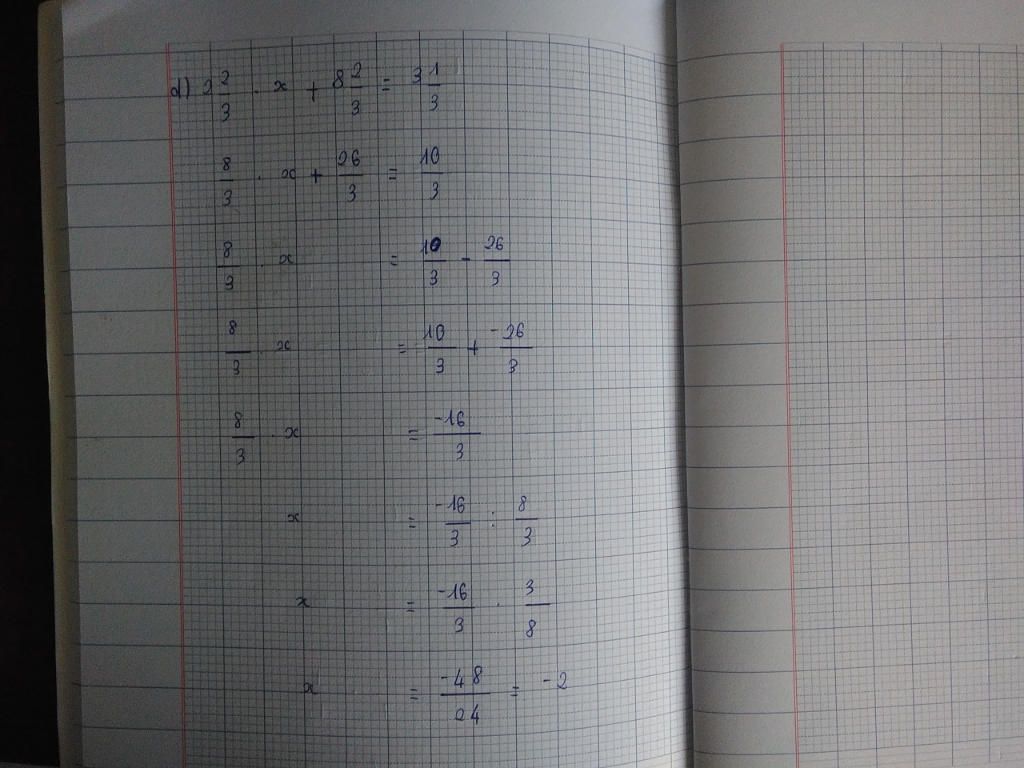 d) 2 2/3 · x + 8 2/3 = 3 1/3
8/3 · x + 26/3 = 10/3
8/3 · x = 10/3 - 26/3
8/3 · x = 10/3 + -26/3
8/3 · x = -16/3
x = -16/3 : 8/3
x = -16/3 · 3/8
x = -48/24 = -2